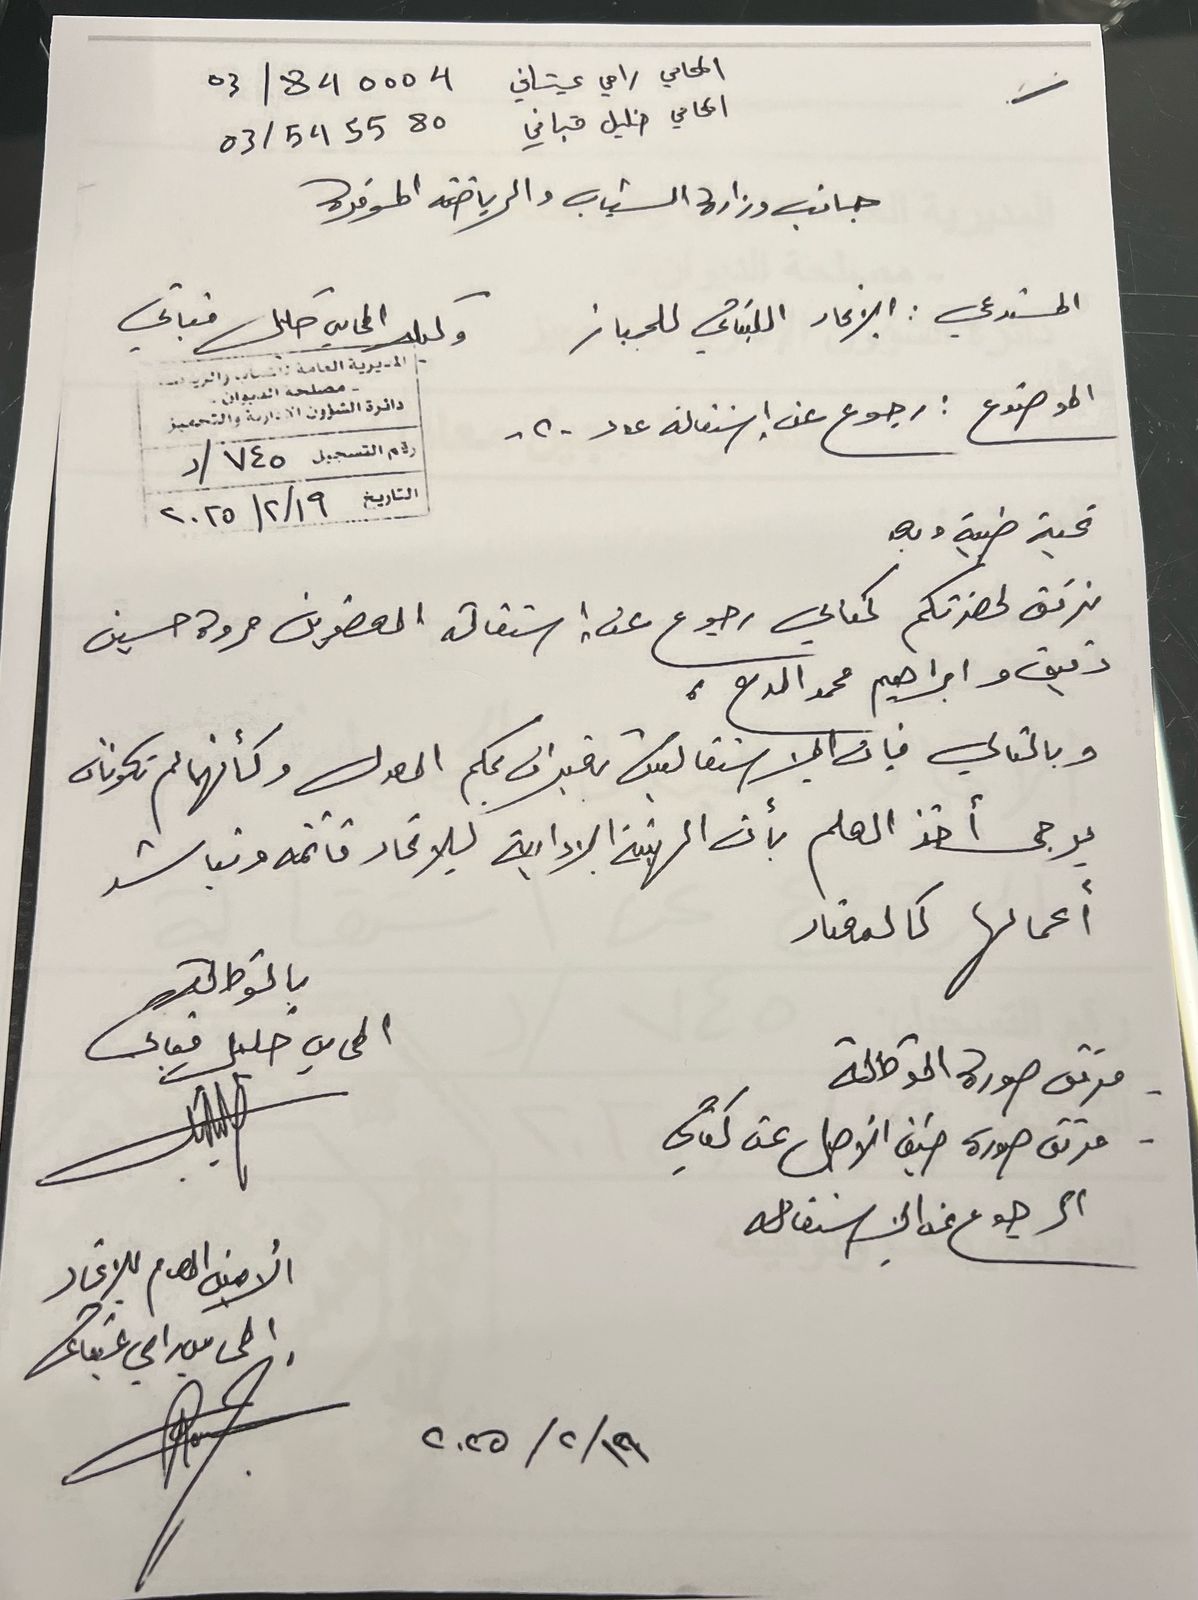 المحامي رامي عيتاني 03/840004
المحامي خليل قباني 03/545580
جانب وزارة الشباب والرياضة الموقرة
المستدعي : الإتحاد اللبناني للجمباز
وكيله المحامي خليل قباني
المديرية العامة للشباب والرياضة
- مصلحة الديوان -
دائرة الشؤون الادارية والتجهيز
رقم التسجيل ٧٤٥/د
التاريخ ٢٠٢٥/٢/١٩
الموضوع : رجوع عن إستقالة عدد -٢-
تحية طيبة وبعد
نرفق لحضرتكم كتابي رجوع عن إستقالة العضوين مروة حسين
دقيق و ابراهيم محمد المدح ،
وبالتالي فإن الإستقالتين تعتبران بحكم العدل وكأنهما لم تكونان
يرجى أخذ العلم بأن الهيئة الإدارية للإتحاد قائمة وتباشر
أعمالها كالمعتاد
بالوكالة
المحامي خليل قباني
- مرفق صورة الوكالة
- مرفق صورة طبق الأصل عن كتابي
الرجوع عن الإستقالة
الأمين العام للإتحاد
المحامي رامي عيتاني
٢٠٢٥/٢/١٩